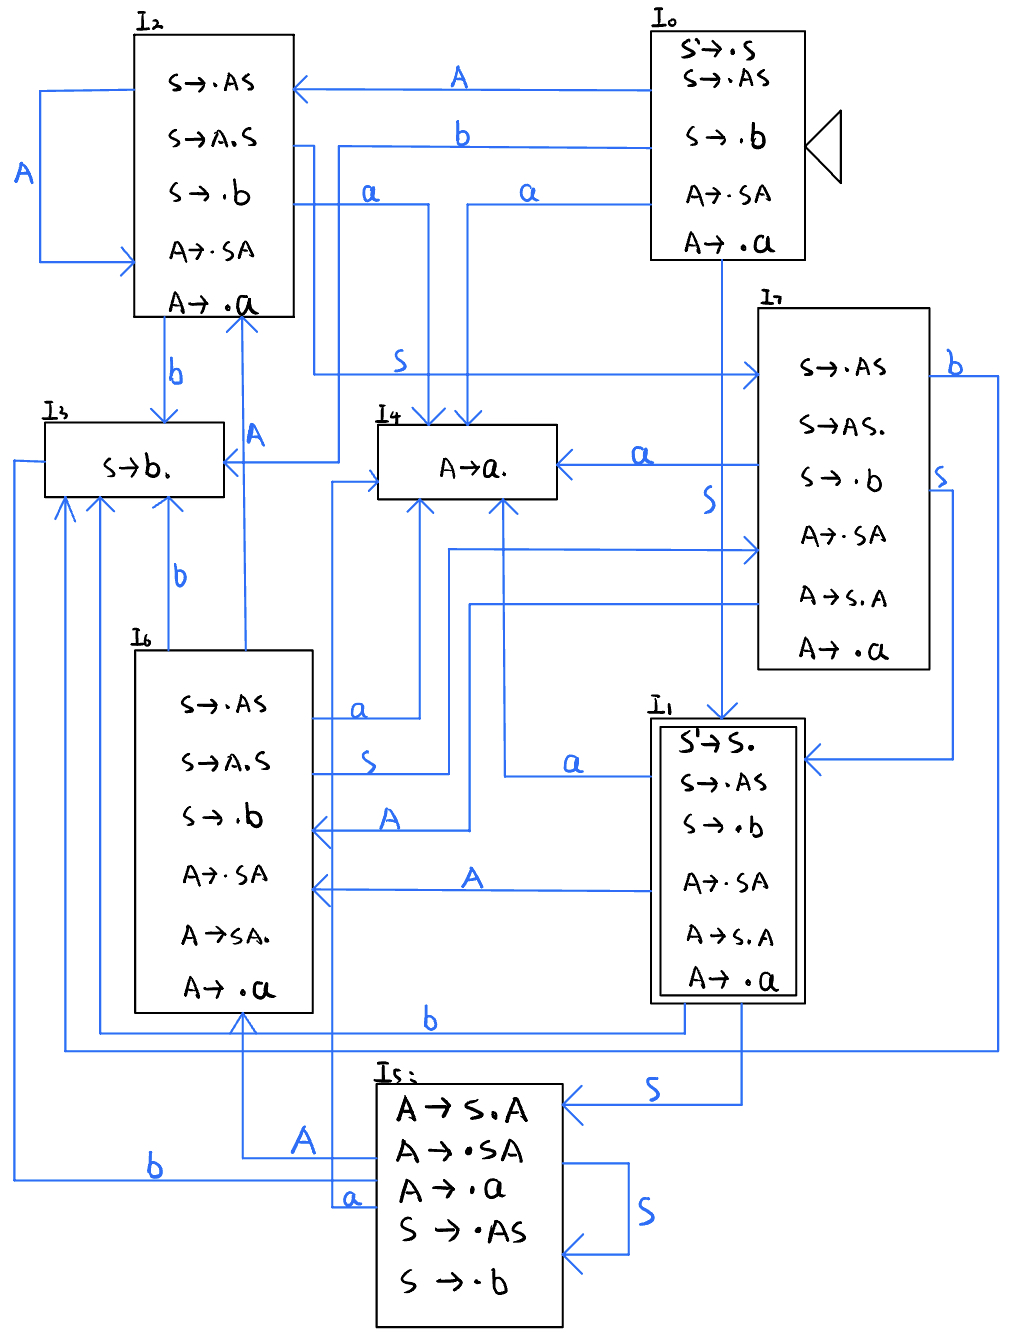 I2
S→.AS
S→A.S
S→.b
A→.SA
A→.a
I0
S'→.S
S→.AS
S→.b
A→.SA
A→.a
A
b
a
a
A
S
b
I7
S→.AS
S→AS.
S→.b
A→.SA
A→S.A
A→.a
b
S
I3
S→b.
A
I4
A→a.
a
S
b
I6
S→.AS
S→A.S
S→.b
A→.SA
A→SA.
A→.a
a
S
A
A
a
I1
S'→S.
S→.AS
S→.b
A→.SA
A→S.A
A→.a
b
S
I5:
A→S.A
A→.SA
A→.a
S→.AS
S→.b
A
b
a
S